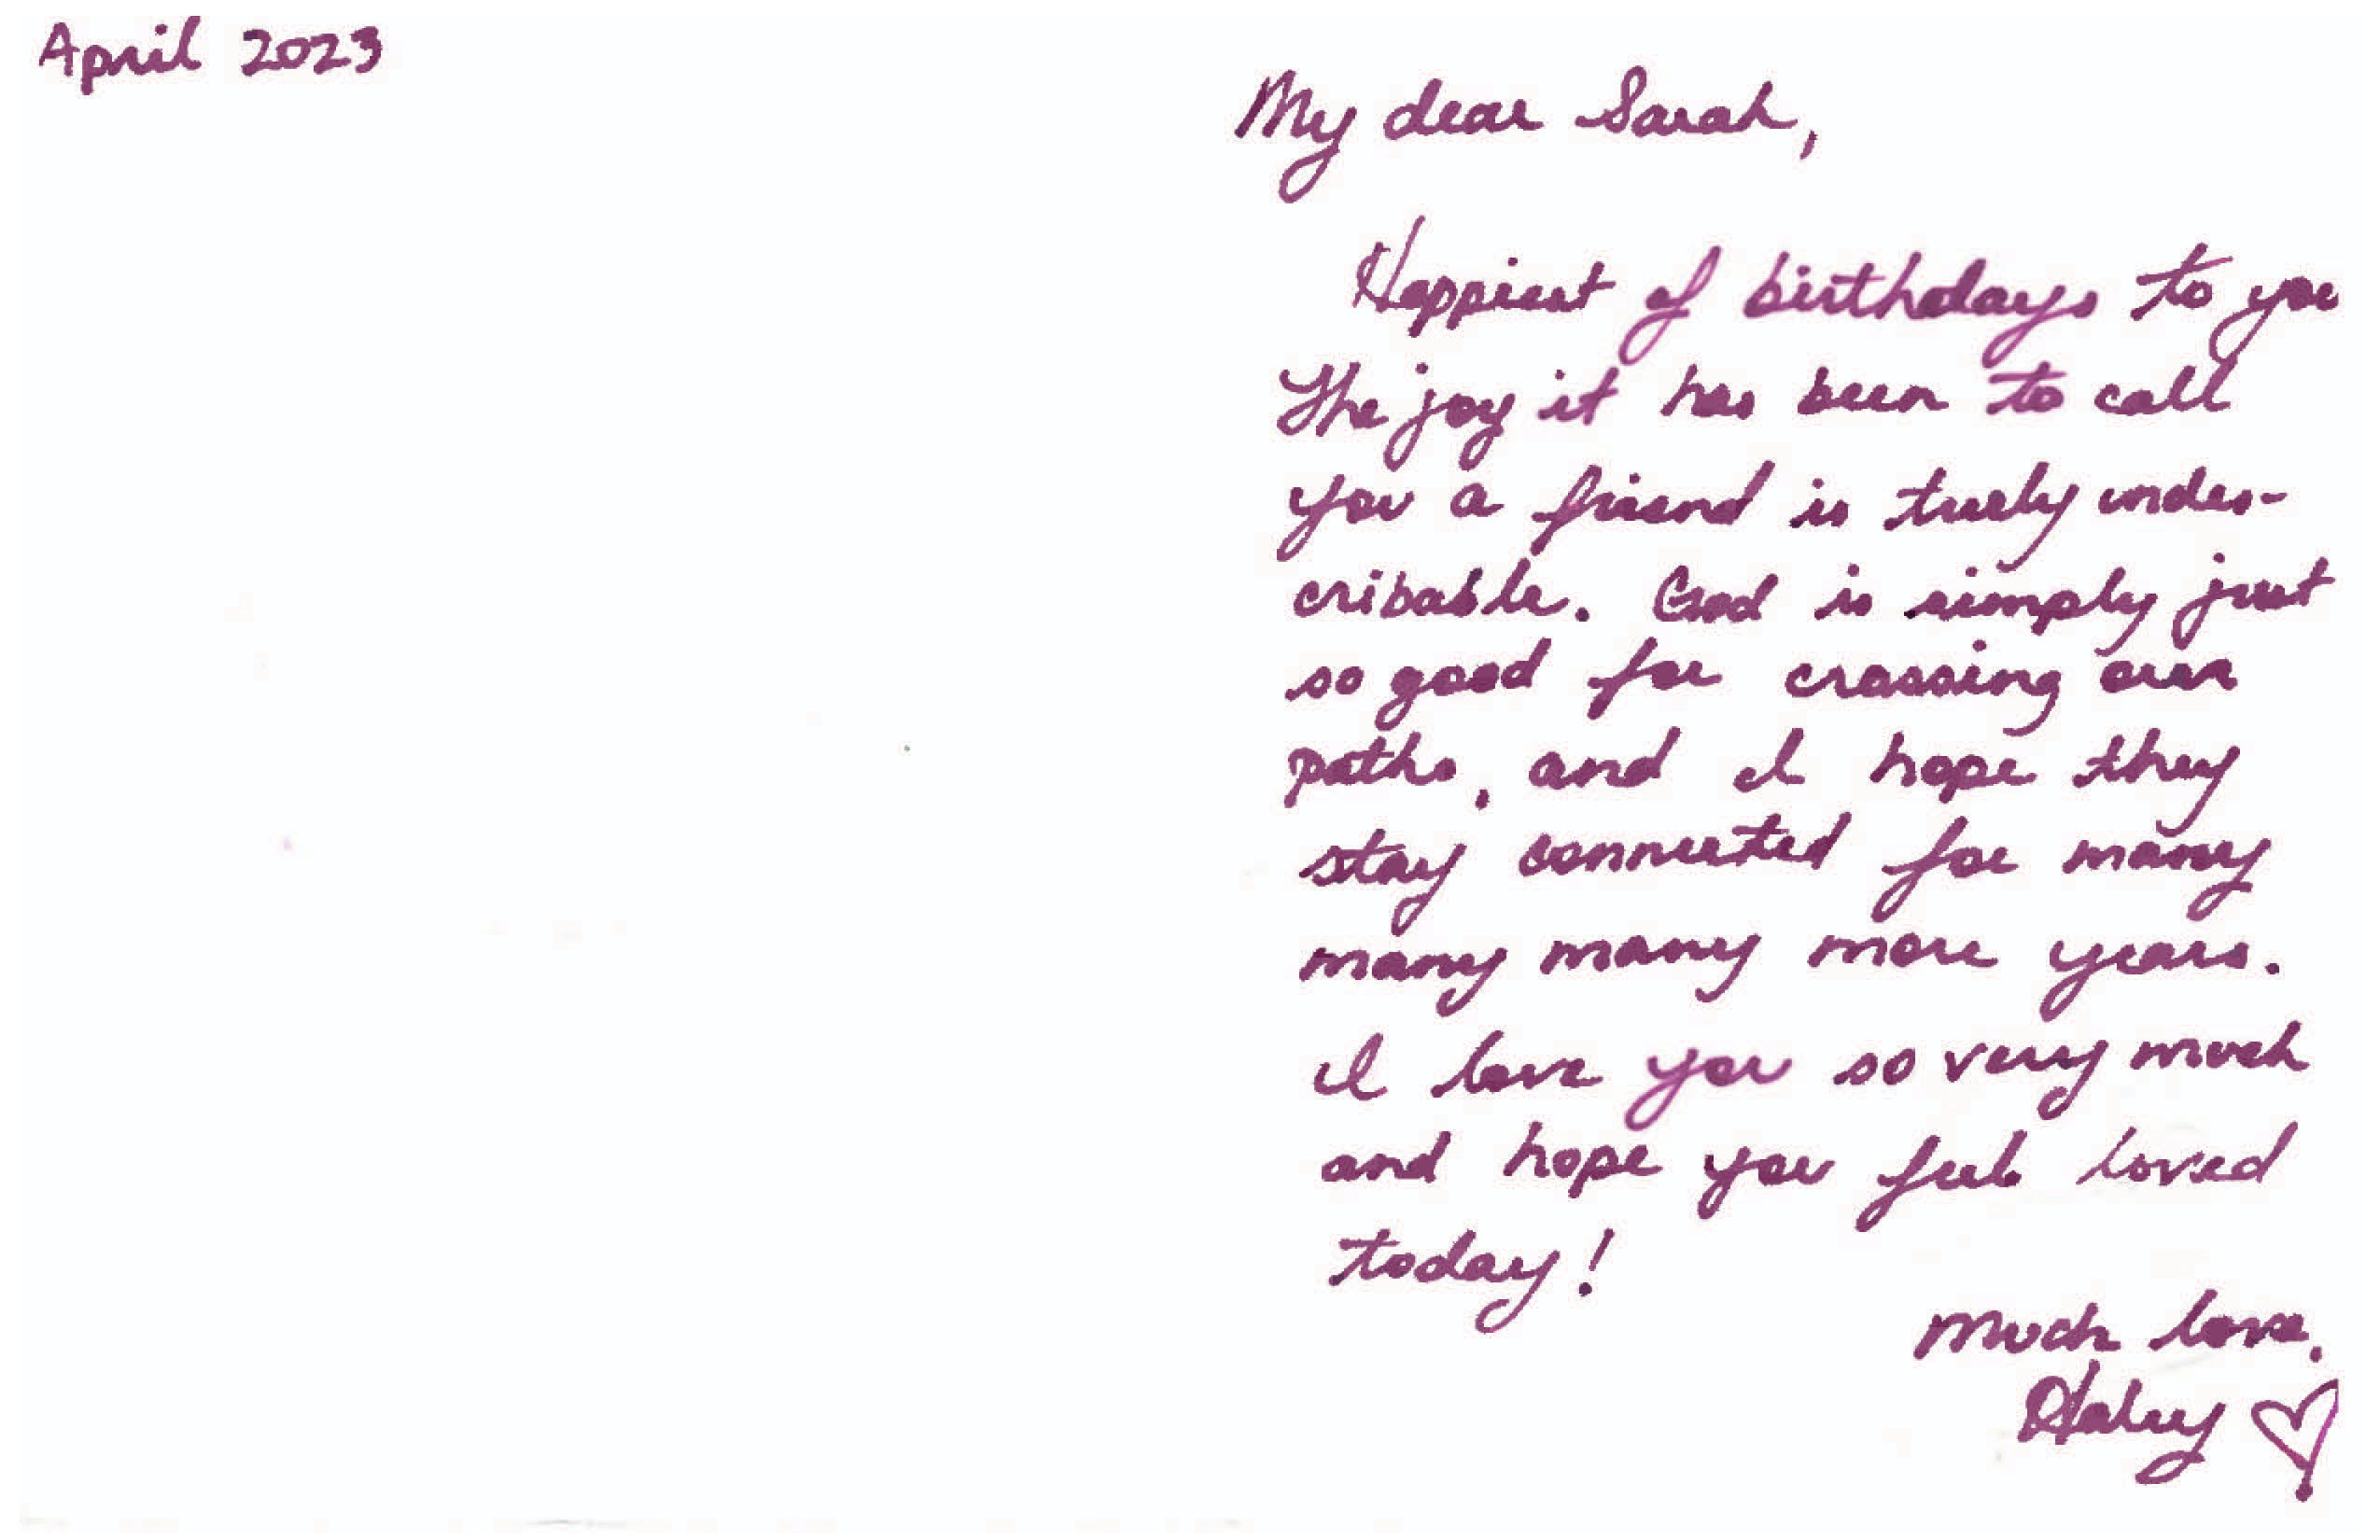 April 2023
My dear Sarah,
Happiest of birthdays to you
The joy it has been to call
you a friend is truly undes-
cribable. God is simply just
so good for crossing our
paths, and I hope they
stay connected for many
many many more years.
I love you so very much
and hope you feel loved
today!
Much love,
Haley ♡